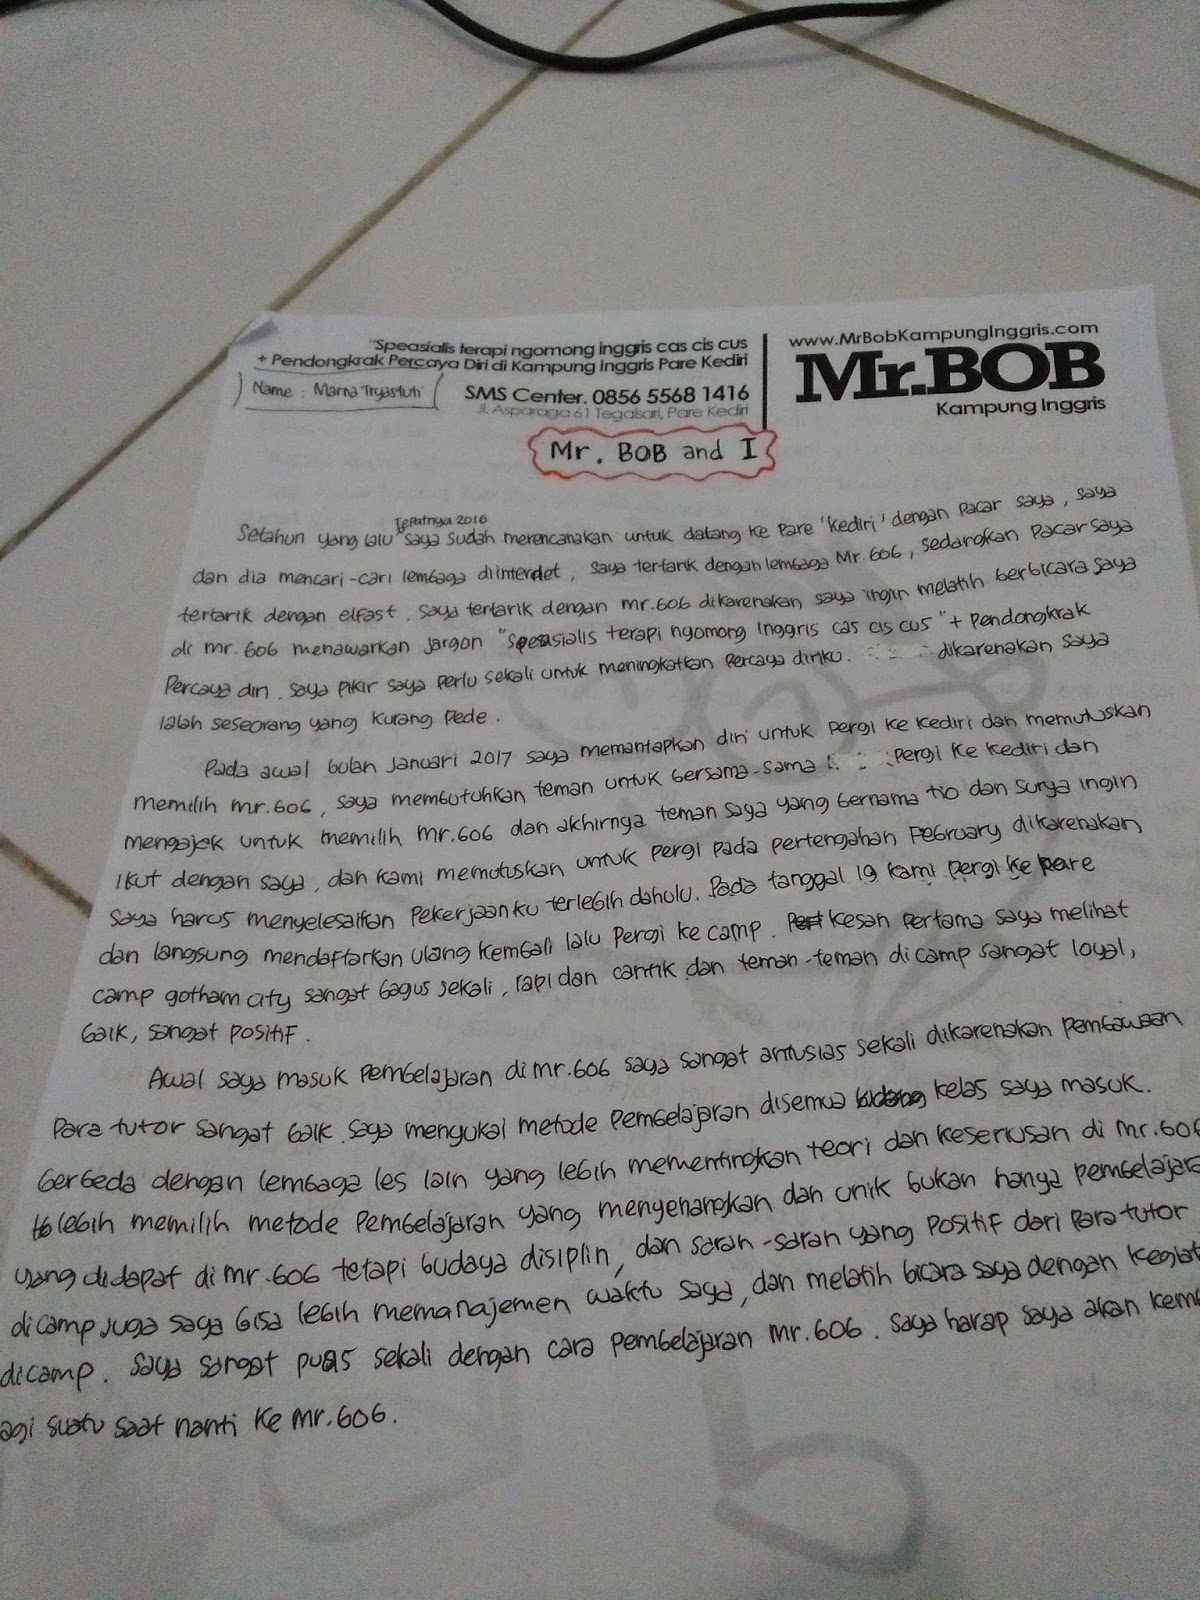 "Speasialis terapi ngomong inggris cas cis cus
+ Pendongkrak Percaya Diri di Kampung Inggris Pare Kediri
Name : Marna Tryastuti
SMS Center. 0856 5568 1416
Jl. Asparaga 61 Tegalsari, Pare Kediri
www.MrBobKampungInggris.com
Mr.BOB
Kampung Inggris
Mr. BOB and I
Tepatnya 2016
Setahun yang lalu saya sudah merencanakan untuk datang ke Pare 'Kediri' dengan pacar saya, saya
dan dia mencari-cari lembaga diinterdet, saya tertarik dengan lembaga Mr.bob, sedangkan pacar saya
tertarik dengan elfast. saya tertarik dengan mr.bob dikarenakan saya ingin melatih berbicara saya
di mr.bob menawarkan jargon "Speasialis terapi ngomong Inggris cas cis cus" + Pendongkrak
Percaya diri. saya pikir saya perlu sekali untuk meningkatkan percaya diriku. dikarenakan saya
ialah seseorang yang kurang pede.
Pada awal bulan Januari 2017 saya memantapkan diri untuk pergi ke kediri dan memutuskan
memilih mr.bob, saya membutuhkan teman untuk bersama-sama pergi ke kediri dan
mengajek untuk memilih mr.bob dan akhirnya teman saya yang bernama tio dan surya ingin
ikut dengan saya, dan kami memutuskan untuk pergi pada pertengahan February dikarenakan
saya harus menyelesaikan pekerjaanku terlebih dahulu. Pada tanggal 19 kami pergi ke pare
dan langsung mendaftarkan ulang kembali lalu pergi ke camp. kesan pertama saya melihat
camp gotham city sangat bagus sekali, rapi dan cantik dan teman-teman di camp sangat loyal,
baik, sangat positif.
Awal saya masuk pembelajaran di mr.bob saya sangat antusias sekali dikarenakan pembawaan
para tutor sangat baik. saya menyukai metode pembelajaran disemua kelas saya masuk.
berbeda dengan lembaga les lain yang lebih mementingkan teori dan keseriusan di mr.bob
lebih memilih metode pembelajaran yang menyenangkan dan unik bukan hanya pembelajara
yang didapat di mr.bob tetapi budaya disiplin, dan saran-saran yang positif dari para tutor
dicamp juga saya bisa lebih memanajemen waktu saya, dan melatih bicara saya dengan kegiat
dicamp. saya sangat puas sekali dengan cara pembelajaran mr.bob. saya harap saya akan kem
agi suatu saat nanti ke mr.bob.